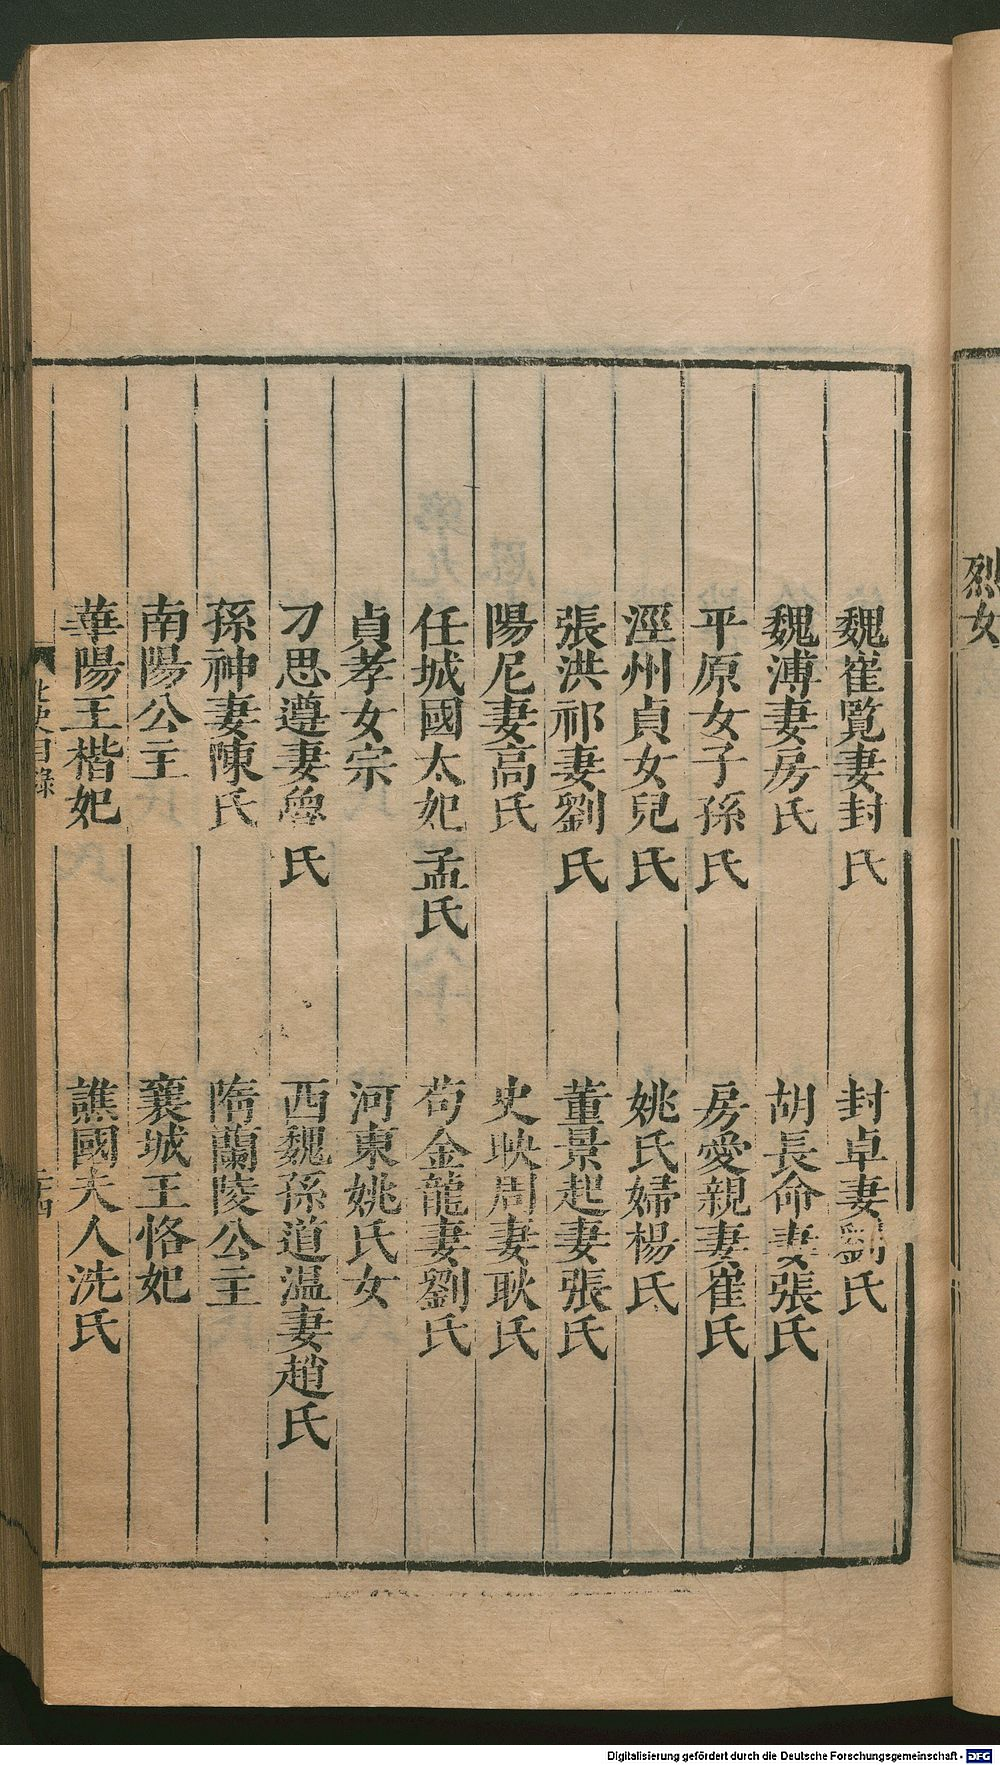 烈女
魏崔覽妻封氏　封卓妻劉氏
魏溥妻房氏　胡長命妻張氏
平原女子孫氏　房愛親妻崔氏
涇州貞女兒氏　姚氏婦楊氏
張洪祁妻劉氏　董景起妻張氏
陽尼妻高氏　史映周妻耿氏
任城國太妃孟氏　苟金龍妻劉氏
貞孝女宗　河東姚氏女
刁思遵妻魯氏　西魏孫道温妻趙氏
孫神妻陳氏　隋蘭陵公主
南陽公主　襄城王恪妃
華陽王楷妃　譙國夫人洗氏
北史目錄
Digitalisierung gefördert durch die Deutsche Forschungsgemeinschaft - DFG